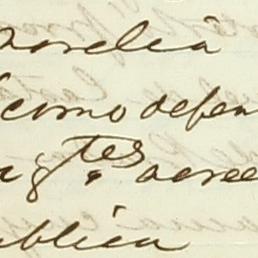 Morelia
como defen
tes acree
ública